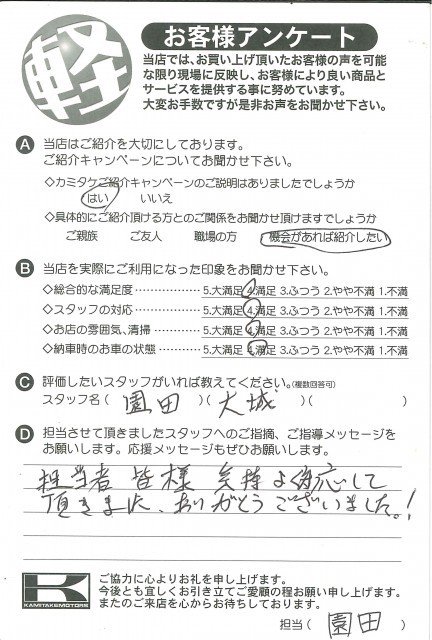 軽
お客様アンケート
当店では、お買い上げ頂いたお客様の声を可能
な限り現場に反映し、お客様により良い商品と
サービスを提供する事に努めています。
大変お手数ですが是非お声をお聞かせ下さい。
A 当店はご紹介を大切にしております。
ご紹介キャンペーンについてお聞かせ下さい。
◇カミタケご紹介キャンペーンのご説明はありましたでしょうか
はい いいえ
◇具体的にご紹介頂ける方とのご関係をお聞かせ頂けますでしょうか
ご親族 ご友人 職場の方 機会があれば紹介したい
B 当店を実際にご利用になった印象をお聞かせ下さい。
◇総合的な満足度 ・・・・・・・・・・・・ 5.大満足 4.満足 3.ふつう 2.やや不満 1.不満
◇スタッフの対応 ・・・・・・・・・・・・ 5.大満足 4.満足 3.ふつう 2.やや不満 1.不満
◇お店の雰囲気、清掃 ・・・・・・・・ 5.大満足 4.満足 3.ふつう 2.やや不満 1.不満
◇納車時のお車の状態 ・・・・・・・・ 5.大満足 4.満足 3.ふつう 2.やや不満 1.不満
C 評価したいスタッフがいれば教えてください。(複数回答可)
スタッフ名 ( 園田 )( 大城 )( )
D 担当させて頂きましたスタッフへのご指摘、ご指導メッセージを
お願いします。応援メッセージもぜひお願いします。
担当者 皆様 気持よく対応して
頂きました、ありがとうございました。!
K
KAMITAKEMOTORS
ご協力に心よりお礼を申し上げます。
今後とも宜しくお引き立てご愛顧の程お願い申し上げます。
またのご来店を心からお待ちしております。
担当 ( 園田 )